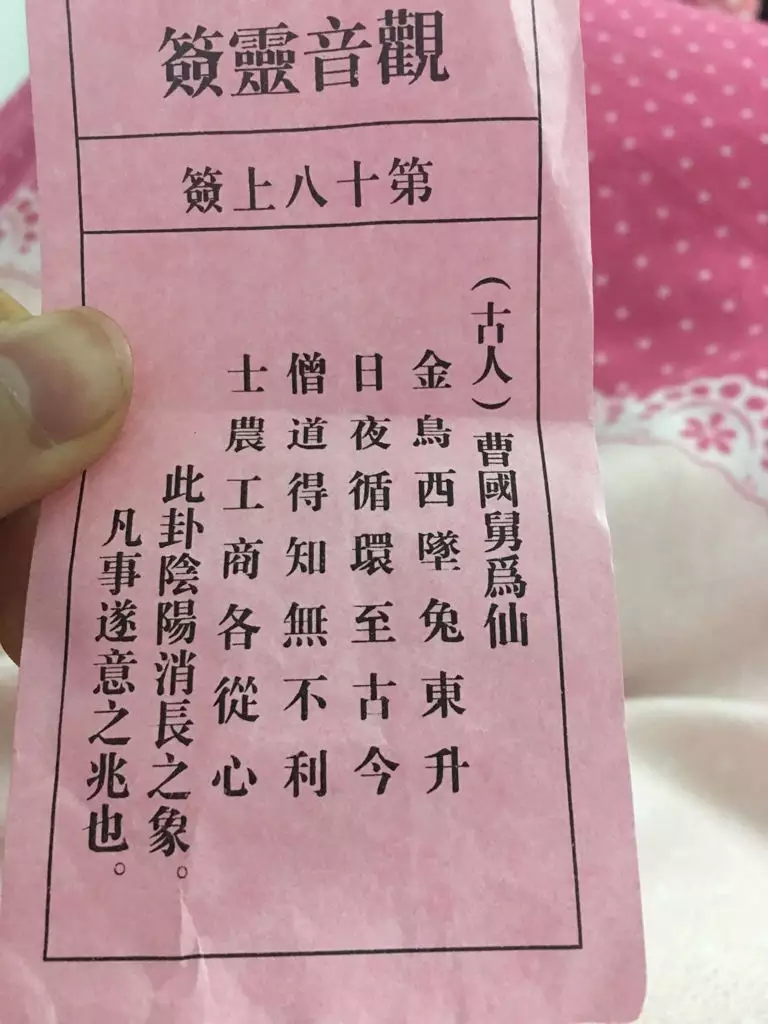 觀音靈簽
第十八上簽
(古人)曹國舅爲仙
金鳥西墜兔東升
日夜循環至古今
僧道得知無不利
士農工商各從心
此卦陰陽消長之象。
凡事遂意之兆也。